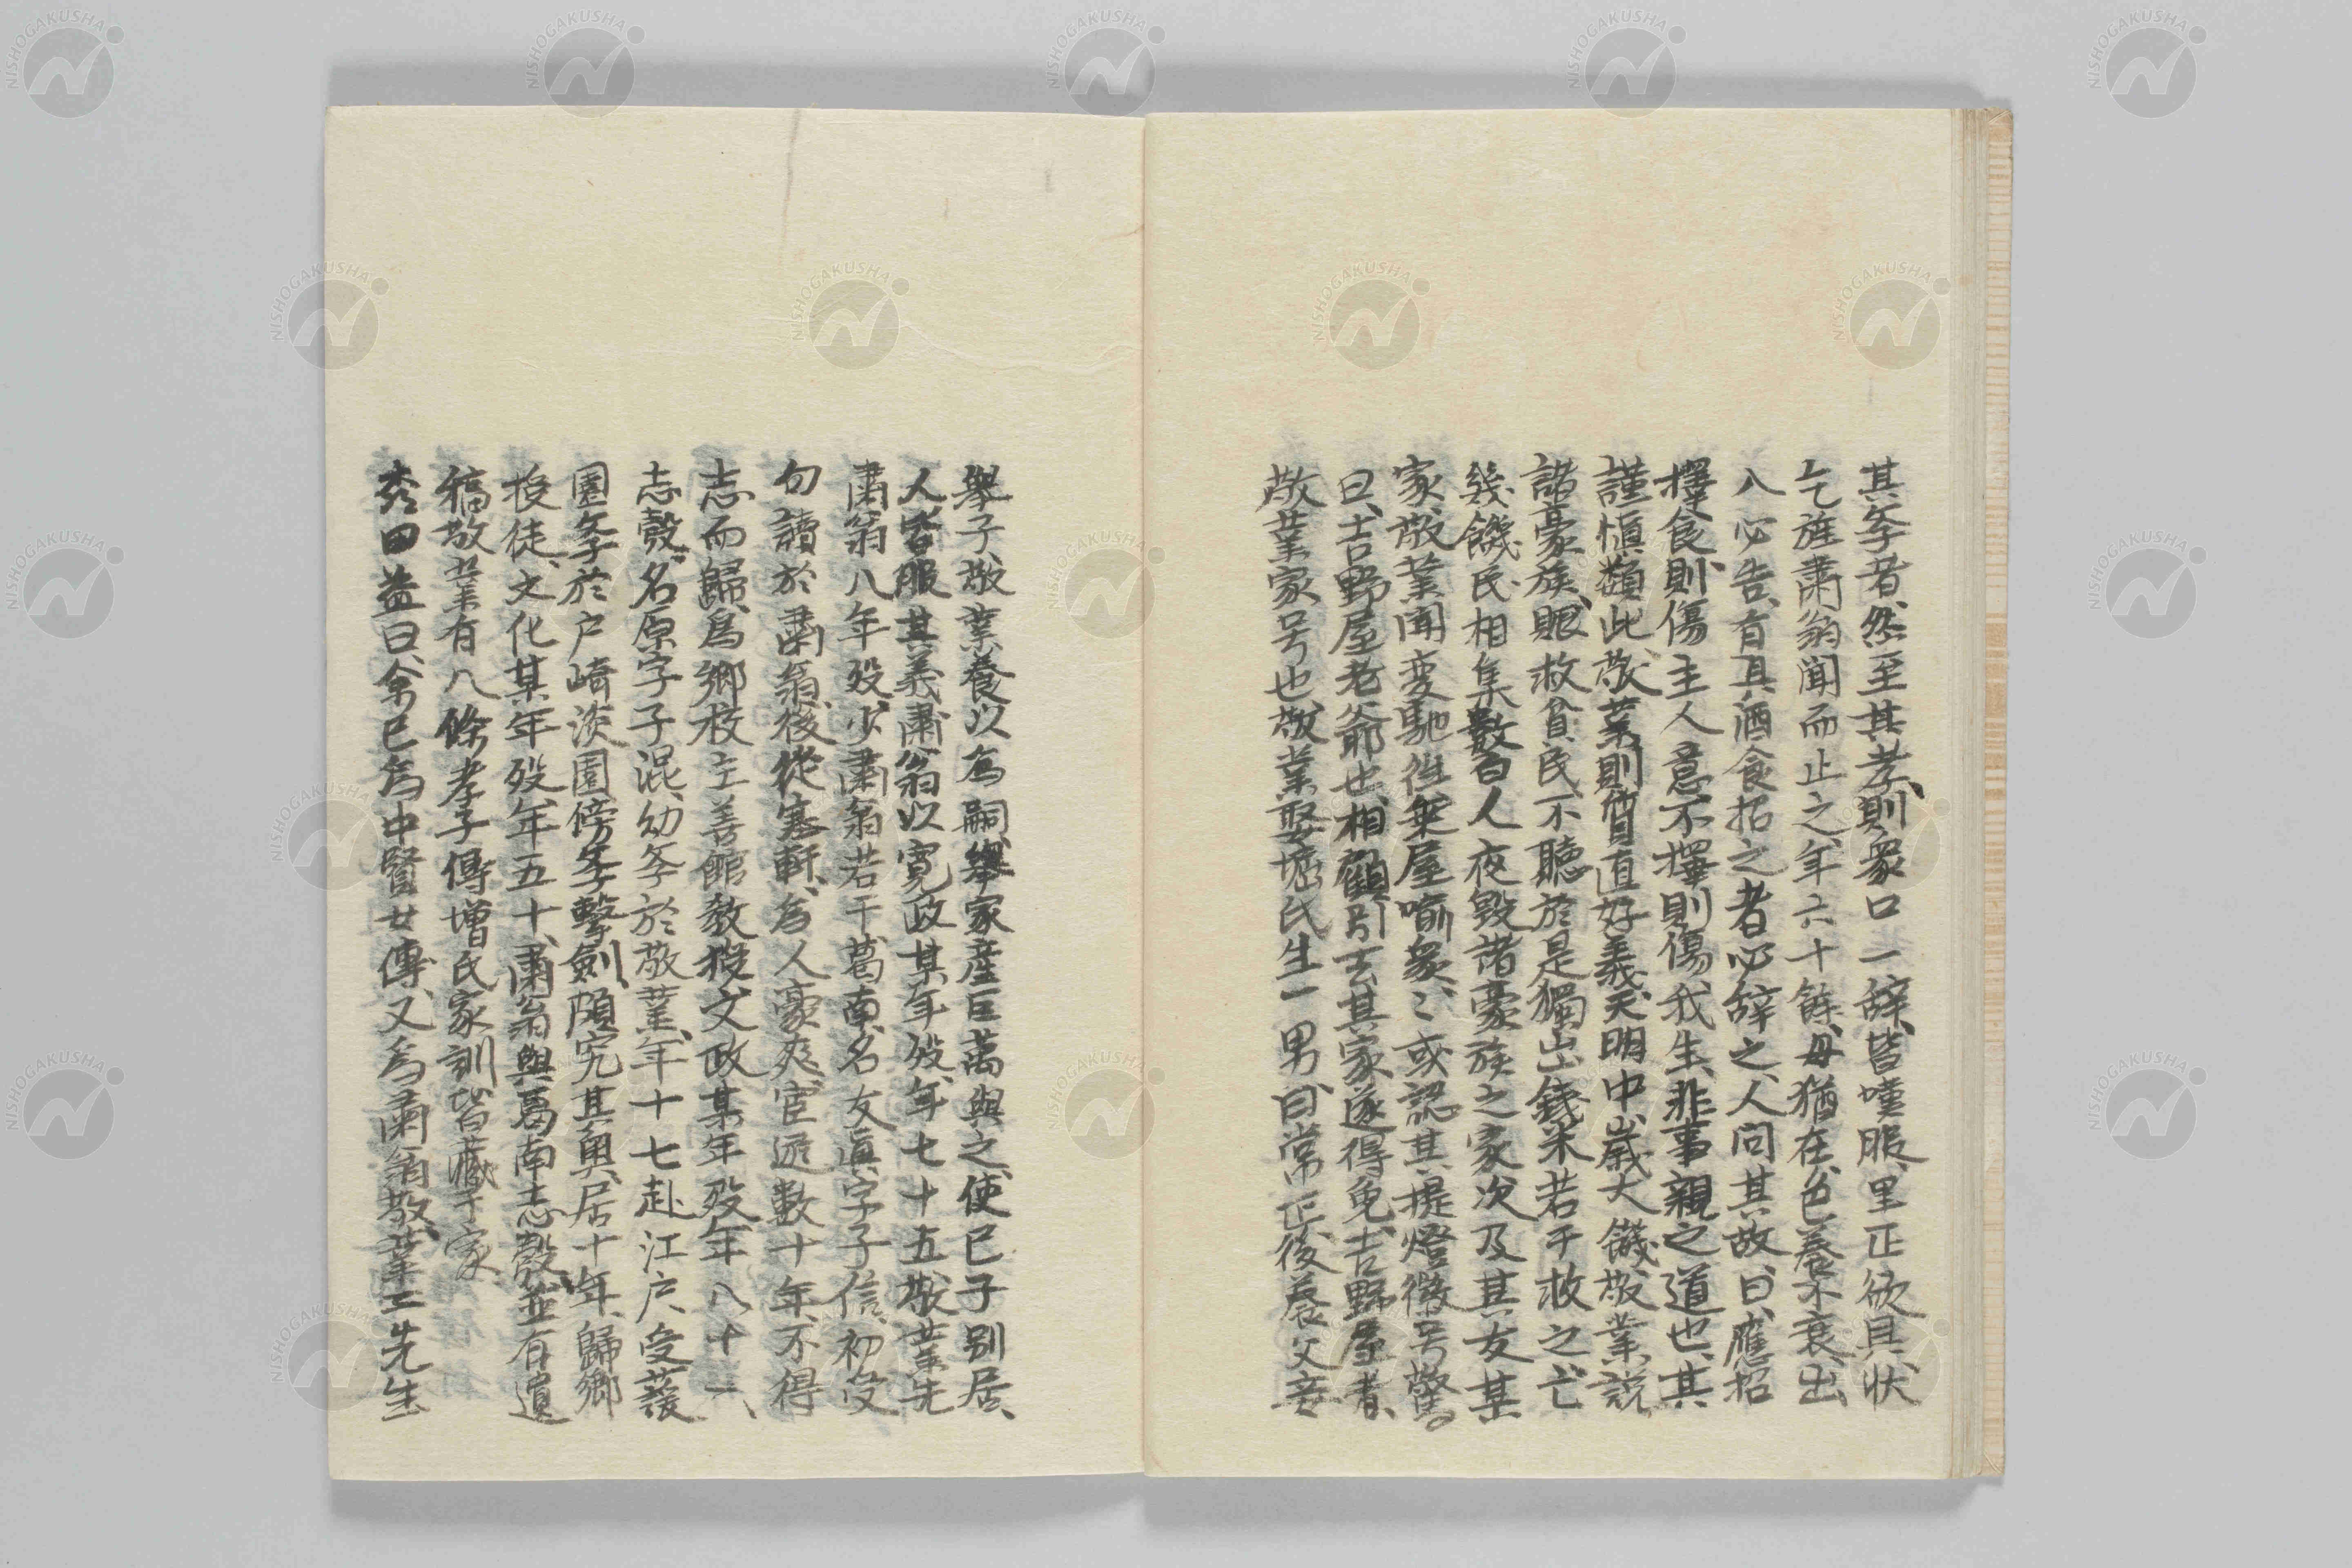 其斈者、然至其孝、則衆口一辞、皆嘆服、里正欲具状
乞旌、肅翁聞而止之、年六十餘、母猶在、色養不衰、出
入必告、有具酒食招之者、必辞之、人問其故、曰、應招
擇食、則傷主人意、不擇則傷我生、非事親之道也、其
謹愼類此、敬業則質直好義、天明中歳大饑、敬業説
諸豪族、賑救貧民、不聴、於是獨出錢米若干救之、亡
幾饑民相集數百人、夜毀諸豪族之家、次及其友某
家、敬業聞変馳徃、乗屋喻衆、〻或認其提燈徽号驚。
曰、吉野屋老爺也、相顧引去、其家遂得免、吉野屋者、
敬業家号也、敬業娶堀氏生一男、曰常正、後養父妾
舉子、敬業養以為嗣、舉家産巨萬與之、使已子別居、
人皆服其義、肅翁以寛政某年歿、年七十五、敬業先
肅翁八年歿、少肅翁若干、葛南、名友眞、字子信、初受
句讀於肅翁、後從蹇軒、為人豪爽、宦遊數十年、不得
志而歸、爲郷校主善館教授、文政某年歿、年八十一、
志彀、名原、字子混、幼斈於敬業、年十七赴江戸、受諼
園斈於戸崎淡園、傍斈擊劍、頗究其奥、居十年、歸郷
授徒、文化某年歿、年五十、肅翁與葛南志彀並有遺
稿、敬業有八條孝子傳増氏家訓、皆藏于家、
森田益曰、余已爲中賢女傳、又爲肅翁敬業二先生